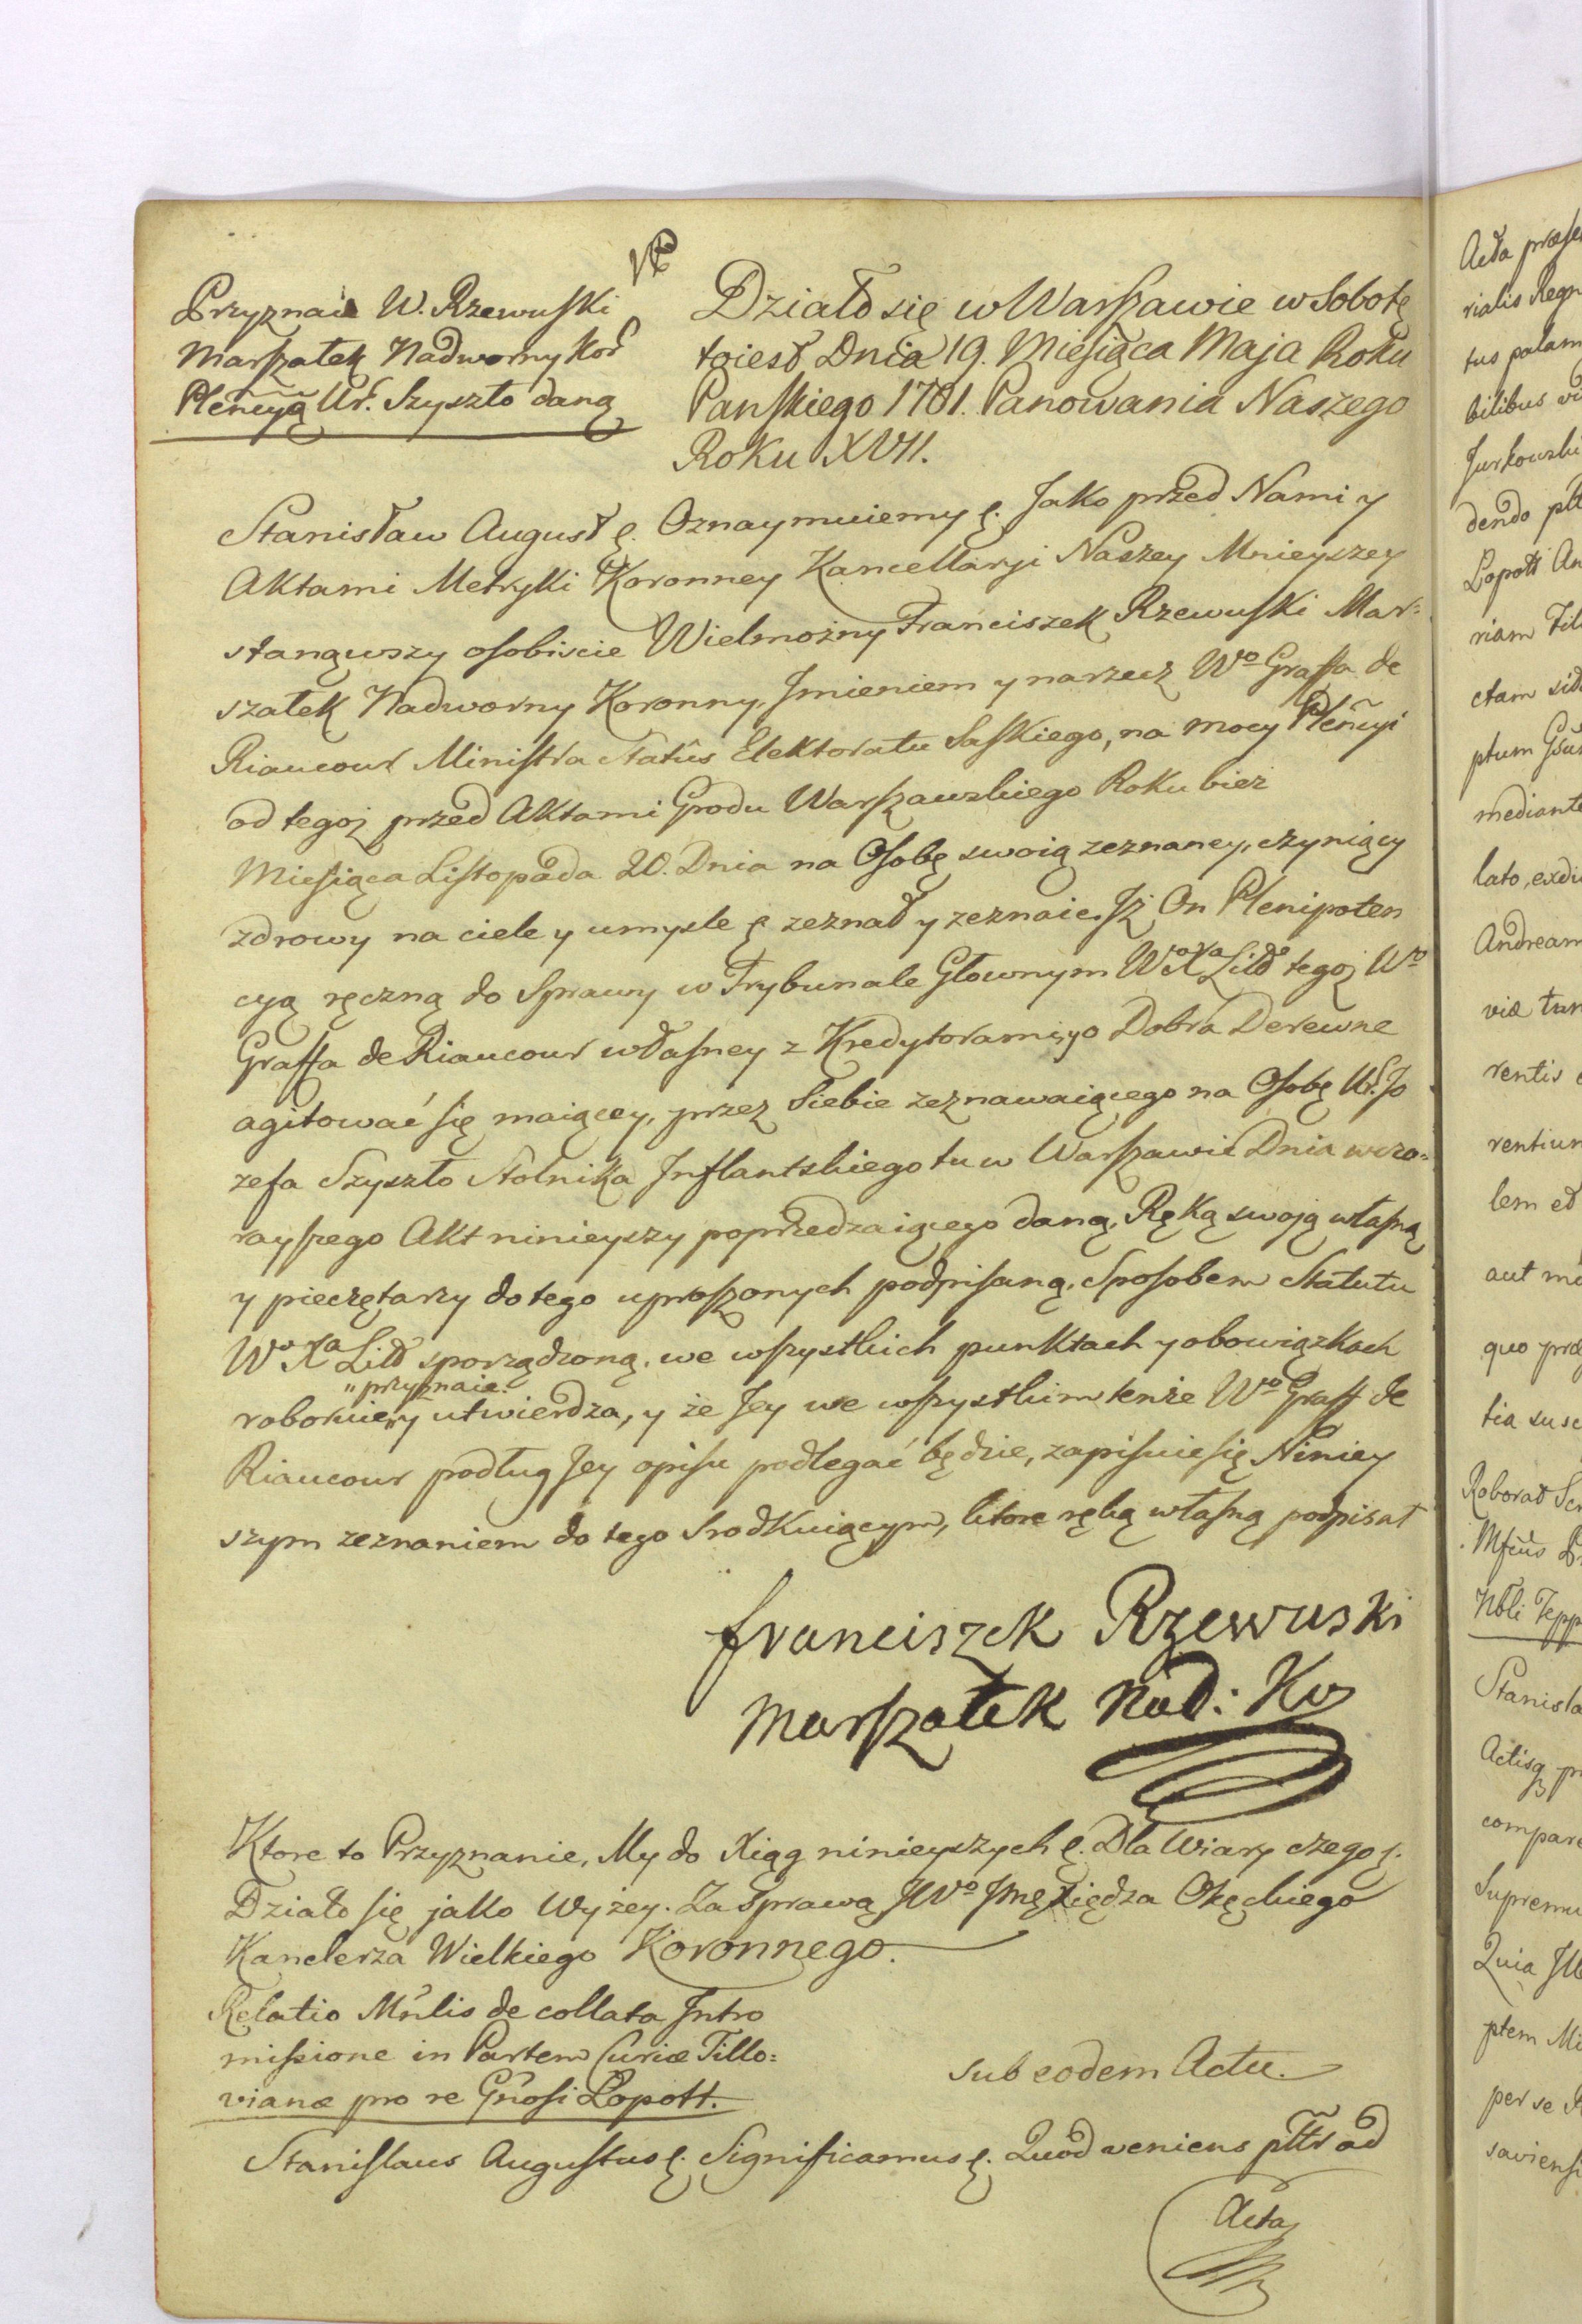 Przyznaie W. Rzewuski
Marszałek Nadworny Kor
Pleńcyą Ur. Szyszło daną
Działo się w Warszawie w Sobotę
toiest Dnia 19. Miesiąca Maja Roku
Panskiego 1781. Panowania Naszego
Roku XVII.
Stanisław August &. Oznaymuiemy &. Jako przed Nami y
Aktami Metryki Koronney Kancellaryi Naszey Mnieyszey
stanąwszy osobiscie Wielmożny Franciszek Rzewuski Mar=
szałek Nadworny Koronny, Jmieniem y narzecz Wo Graffa de
Riaucour Ministra Statûs Elektoratu Saskiego, na mocy Pleńcyi
od tegoż przed Aktami Grodu Warszawskiego Roku bież
Miesiąca Listopada 20. Dnia na Osobę swoią zeznaney, czyniący
zdrowy na ciele y umysle & zeznał y zeznaie, Jż On Plenipoten
cyą ręczną do Sprawy w Trybunale Głownym Wo Xa Litto tegoż Wo
Graffa de Riaucour własney z Kredytorami, yo Dobra Derewne
agitować się maiącey, przez Siebie zeznawaiącego na Osobę Ur. Jo
zefa Szyszło Stolnika Jnflantskiego tu w Warszawie Dnia wczo=
rayszego Akt ninieyszy poprzedzaiącego daną, Ręką swoją własną
y pieczętarzy do tego uproszonych podpisaną, Sposobem Statutu
Wo Xa Litt sporządzoną, we wszystkich punktach y obowiązkach
" przyznaie.
roboruie " y utwierdza, y że Jey we wszystkim tenże Wo Graff de
Riaucour podług Jey opisu podlegać będzie, zapisuie się Niniey
szym zeznaniem do tego Srodkuiącym, ktore ręką własną podpisał
franciszek Rzewuski
Marszałek Nad: Ko
Ktore to Przyznanie, My do Xiąg ninieyszych &. Dla Wiary czego &.
Działo się jako Wyżey. Za Sprawą JWo Jmę Xiędza Okęckiego
Kanclerza Wielkiego Koronnego.
Relatio Mnlis de collata Intro
missione in Partem Curiæ Tillo=
vianæ pro re Gnosi Łopott.
sub eodem Actu.
Stanislaus Augustus &. Significamus &. Quod veniens pttr ad
Acta